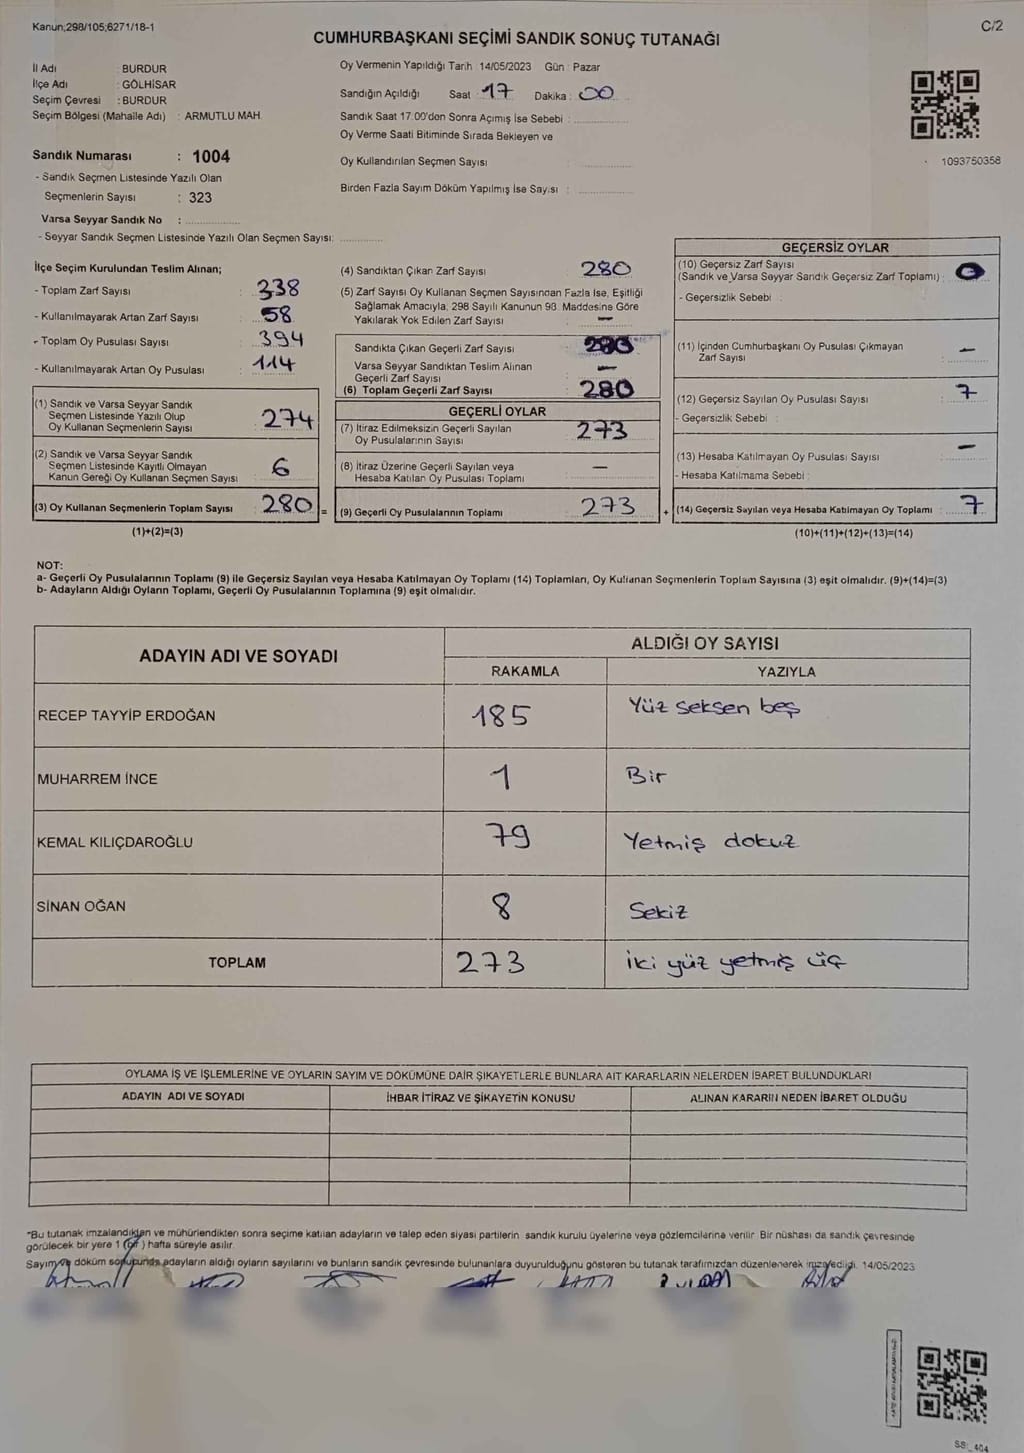 Kanun;298/105;6271/18-1
C/2
CUMHURBAŞKANI SEÇİMİ SANDIK SONUÇ TUTANAĞI
İl Adı : BURDUR
İlçe Adı : GÖLHİSAR
Seçim Çevresi : BURDUR
Seçim Bölgesi (Mahalle Adı) : ARMUTLU MAH.
Sandık Numarası : 1004
- Sandık Seçmen Listesinde Yazılı Olan
Seçmenlerin Sayısı : 323
Varsa Seyyar Sandık No :
- Seyyar Sandık Seçmen Listesinde Yazılı Olan Seçmen Sayısı:
Oy Vermenin Yapıldığı Tarih 14/05/2023 Gün : Pazar
Sandığın Açıldığı Saat 17 Dakika : 00
Sandık Saat 17.00'don Sonra Açımış İse Sebebi :
Oy Verme Saati Bitiminde Sırada Bekleyen ve
Oy Kullandırılan Seçmen Sayısı
Birden Fazla Sayım Döküm Yapılmış İse Sayısı :
1093750358
İlçe Seçim Kurulundan Teslim Alınan;
- Toplam Zarf Sayısı : 338
- Kullanılmayarak Artan Zarf Sayısı : 58
- Toplam Oy Pusulası Sayısı : 394
- Kullanılmayarak Artan Oy Pusulası : 114
(1) Sandık ve Varsa Seyyar Sandık
Seçmen Listesinde Yazılı Olup
Oy Kullanan Seçmenlerin Sayısı : 274
(2) Sandık ve Varsa Seyyar Sandık
Seçmen Listesinde Kayıtlı Olmayan
Kanun Gereği Oy Kullanan Seçmen Sayısı 6
(3) Oy Kullanan Seçmenlerin Toplam Sayısı : 280 =
(1)+(2)=(3)
(4) Sandıktan Çıkan Zarf Sayısı 280
(5) Zarf Sayısı Oy Kullanan Seçmen Sayısından Fazla İse, Eşitliği
Sağlamak Amacıyla, 298 Sayılı Kanunun 98. Maddesine Göre
Yakılarak Yok Edilen Zarf Sayısı : —
Sandıkta Çıkan Geçerli Zarf Sayısı 280
Varsa Seyyar Sandıktan Teslim Alınan
Geçerli Zarf Sayısı —
(6) Toplam Geçerli Zarf Sayısı : 280
GEÇERLİ OYLAR
(7) İtiraz Edilmeksizin Geçerli Sayılan
Oy Pusulalarının Sayısı : 273
(8) İtiraz Üzerine Geçerli Sayılan veya
Hesaba Katılan Oy Pusulası Toplamı : —
(9) Geçerli Oy Pusulalarının Toplamı : 273 +
GEÇERSİZ OYLAR
(10) Geçersiz Zarf Sayısı
(Sandık ve Varsa Seyyar Sandık Geçersiz Zarf Toplamı) :
- Geçersizlik Sebebi :
(11) İçinden Cumhurbaşkanı Oy Pusulası Çıkmayan
Zarf Sayısı : —
(12) Geçersiz Sayılan Oy Pusulası Sayısı : 7
- Geçersizlik Sebebi :
(13) Hesaba Katılmayan Oy Pusulası Sayısı : —
- Hesaba Katılmama Sebebi :
(14) Geçersiz Sayılan veya Hesaba Katılmayan Oy Toplamı : 7
(10)+(11)+(12)+(13)=(14)
NOT:
a- Geçerli Oy Pusulalarının Toplamı (9) ile Geçersiz Sayılan veya Hesaba Katılmayan Oy Toplamı (14) Toplamları, Oy Kullanan Seçmenlerin Toplam Sayısına (3) eşit olmalıdır. (9)+(14)=(3)
b- Adayların Aldığı Oyların Toplamı, Geçerli Oy Pusulalarının Toplamına (9) eşit olmalıdır.
ADAYIN ADI VE SOYADI
ALDIĞI OY SAYISI
RAKAMLA YAZIYLA
RECEP TAYYİP ERDOĞAN 185 Yüz seksen beş
MUHARREM İNCE 1 Bir
KEMAL KILIÇDAROĞLU 79 Yetmiş dokuz
SİNAN OĞAN 8 Sekiz
TOPLAM 273 iki yüz yetmiş üç
OYLAMA İŞ VE İŞLEMLERİNE VE OYLARIN SAYIM VE DÖKÜMÜNE DAİR ŞİKAYETLERLE BUNLARA AİT KARARLARIN NELERDEN İBARET BULUNDUKLARI
ADAYIN ADI VE SOYADI İHBAR İTİRAZ VE ŞİKAYETİN KONUSU ALINAN KARARIN NEDEN İBARET OLDUĞU
*Bu tutanak imzalandıktan ve mühürlendikten sonra seçime katılan adayların ve talep eden siyasi partilerin sandık kurulu üyelerine veya gözlemcilerine verilir. Bir nüshası da sandık çevresinde
görülecek bir yere 1 (bir) hafta süreyle asılır.
Sayım ve döküm sonucunda adayların aldığı oyların sayılarını ve bunların sandık çevresinde bulunanlara duyurulduğunu gösteren bu tutanak tarafımızdan düzenlenerek imza edildi. 14/05/2023
SS:_404